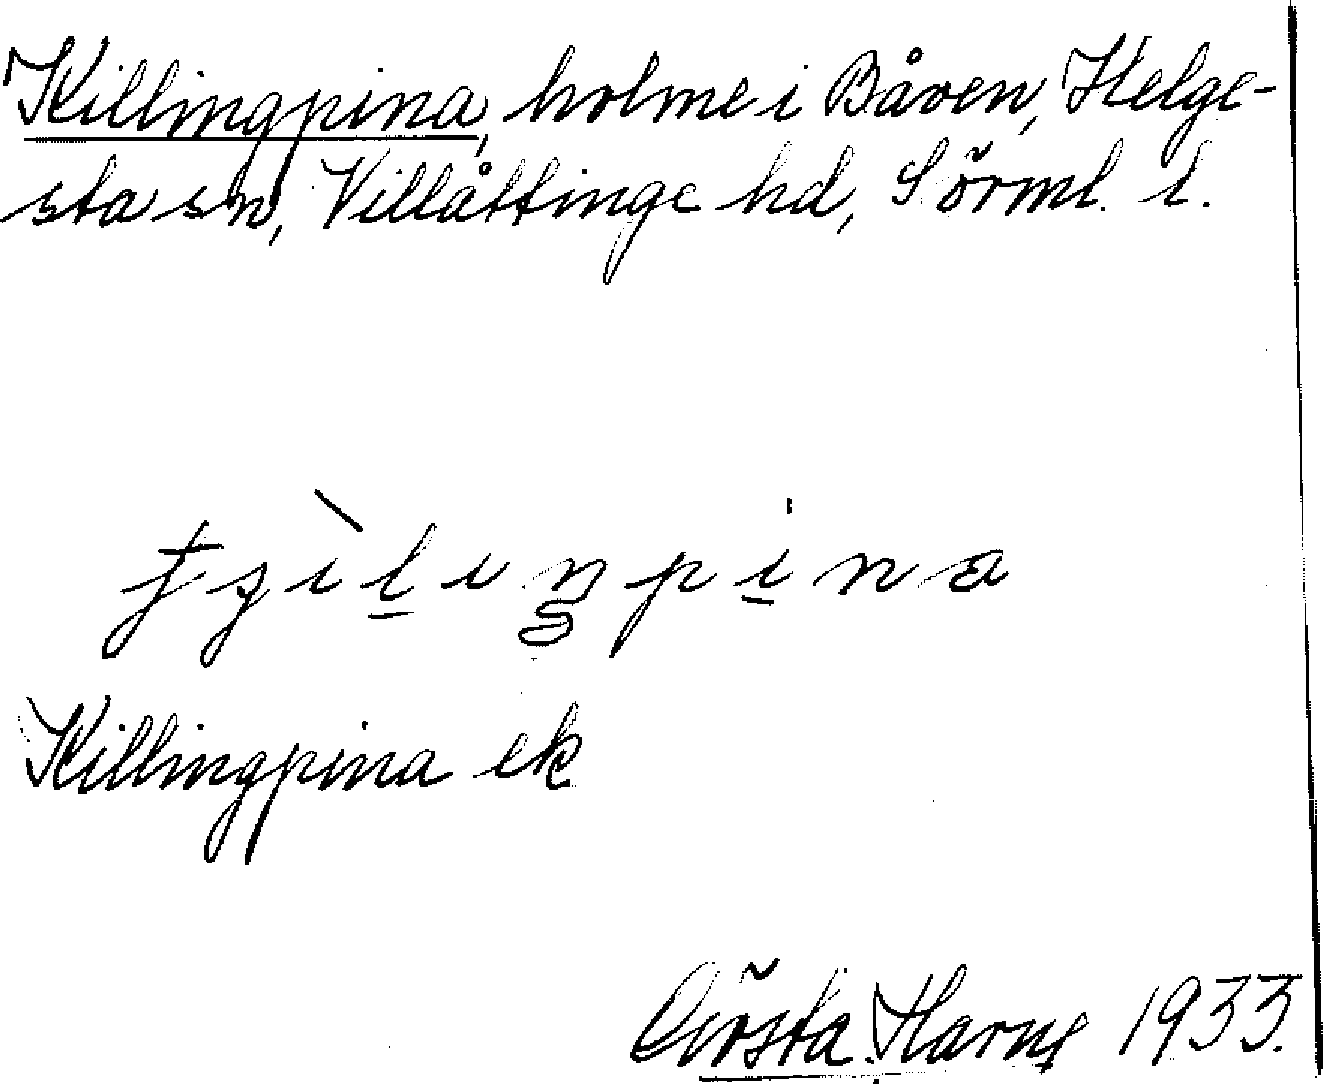 Killingpina, holme i Båven, Helge-
sta sn, Villåttinge hd, Sörml. l.
Killingpina ek
Gösta Harne 1933.